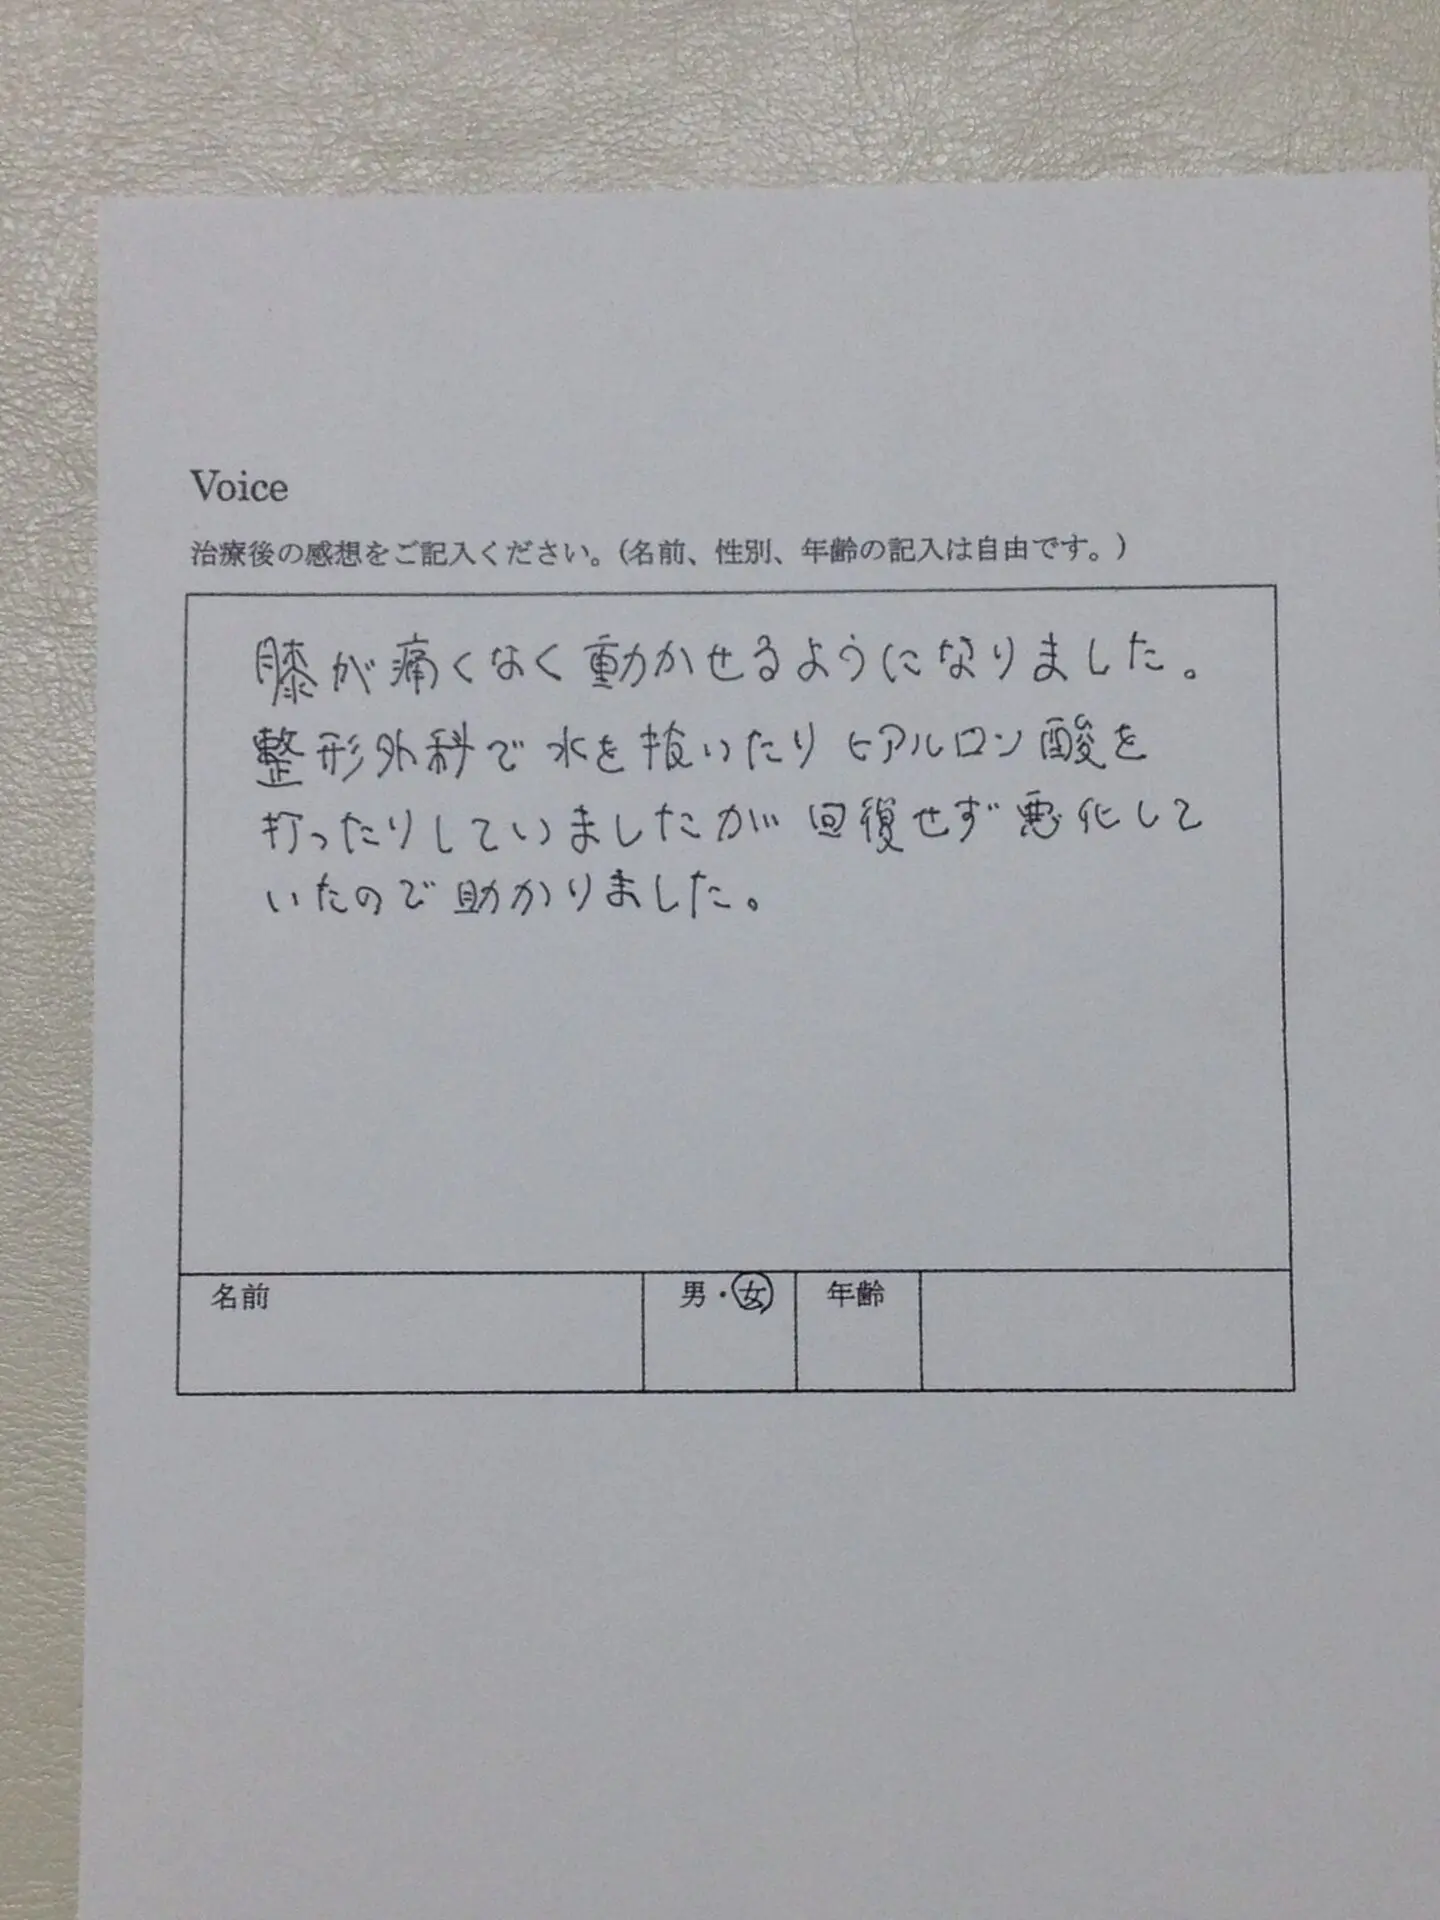 Voice
治療後の感想をご記入ください。（名前、性別、年齢の記入は自由です。）
膝が痛くなく動かせるようになりました。
整形外科で水を抜いたりヒアルロン酸を
打ったりしていましたが回復せず悪化して
いたので助かりました。
名前 男・女 年齢